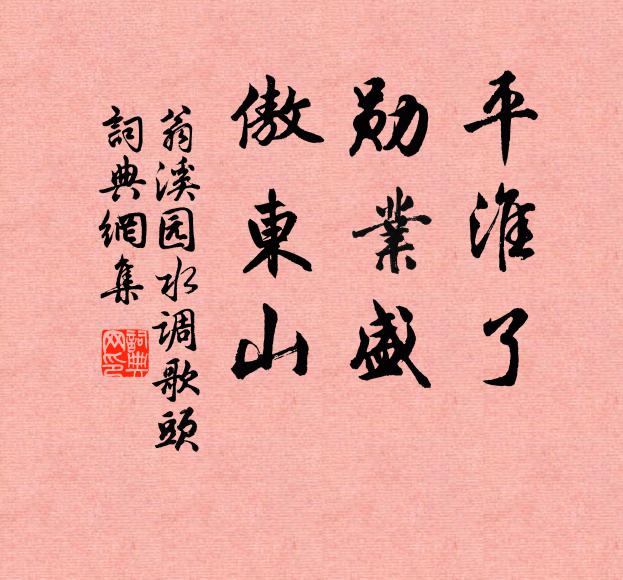 平淮了
勋業盛
傲東山
翁溪园水调歌頭
詞典網集
詞典网印